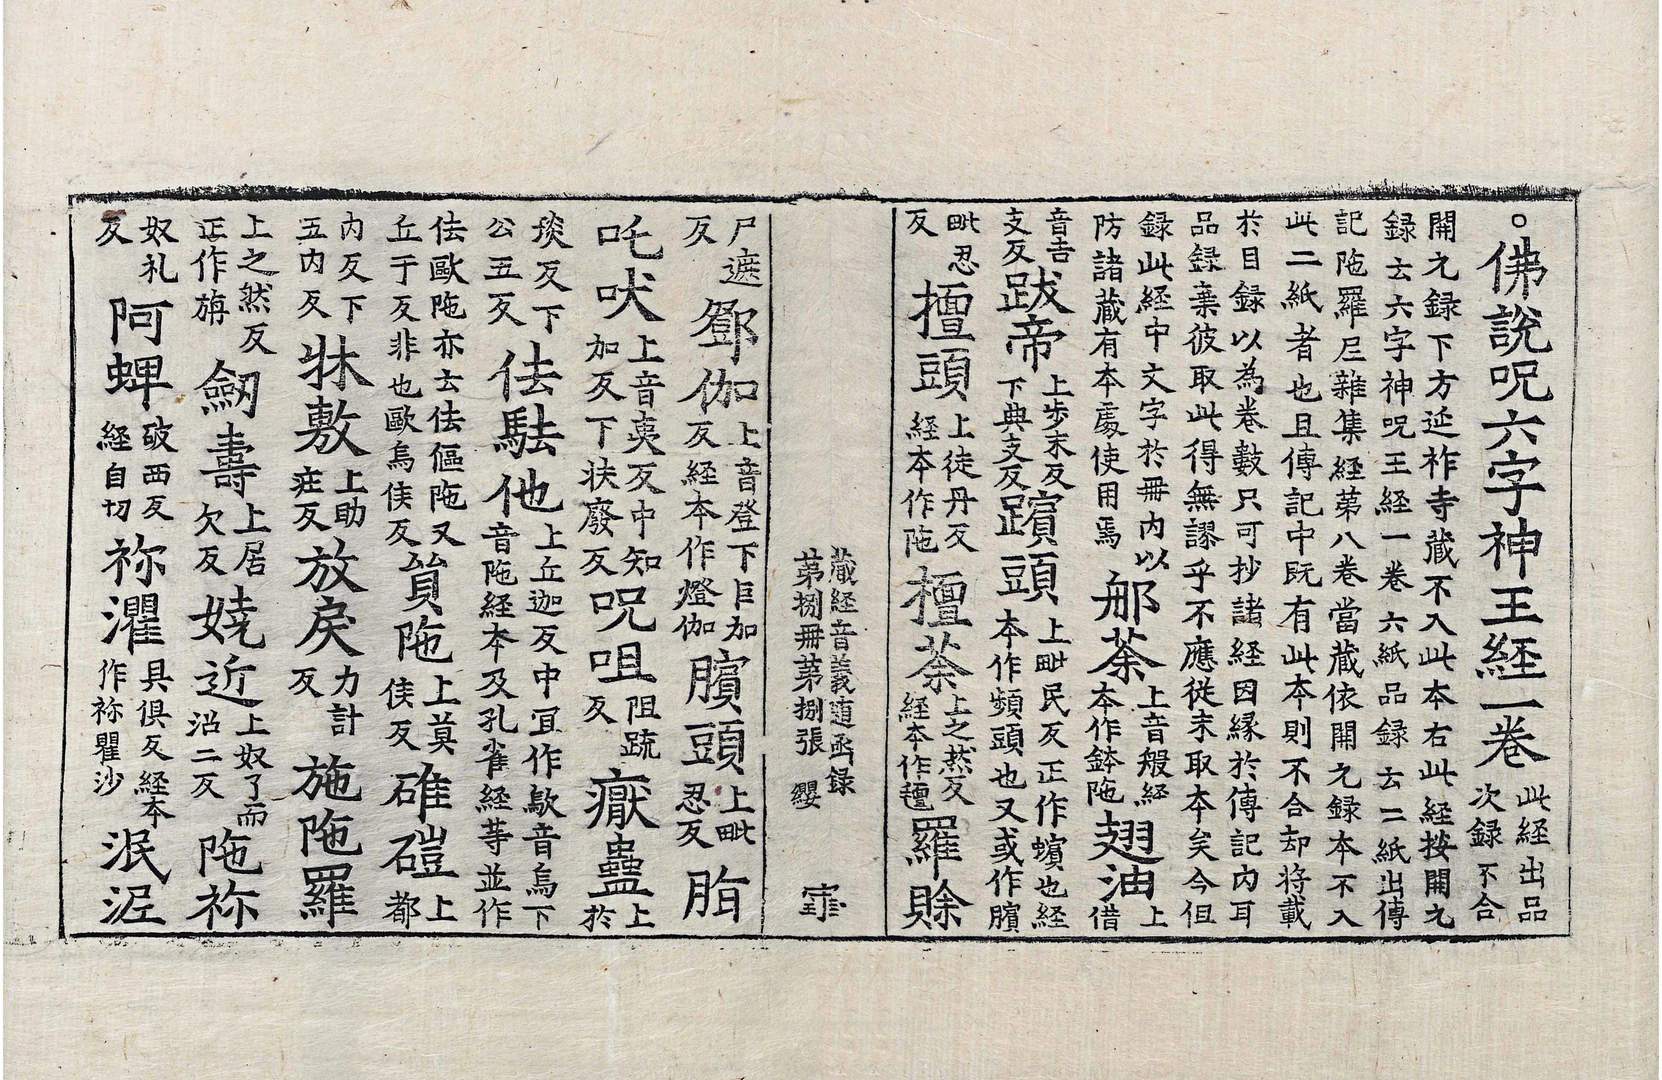 。佛說呪六字神王経一卷此経出品次録不合
開元録下方延祚寺蔵不入此本右此経按開元
録云六字神呪王経一卷六紙品録云二紙出傳
記陁羅尼雜集経苐八卷當蔵依開元録本不入
此二紙者也且傳記中旣有此本則不合却将載
於目録以為卷數只可抄諸経因縁於傳記内耳
品録棄彼取此得無謬乎不應従末取本矣今但
録此経中文字於冊内以防諸蔵有本處使用焉郍荼上音般経本作鉢陁翅油上借
音吉支反跋帝上步末反下典支反蠙頭上毗民反正作蠙也経本作頻頭也又或作臏
毗忍反擅頭上徒丹反経本作陁檀荼上之然反経本作羅賒
藏経音義随函録
苐捌冊苐捌張 纓
尸遮反鄧伽上音登下巨加反経本作燈伽臏頭上毗忍反脂
吒吠上音夷反中知加反下扶廢反呪咀阻䟽反癥蠱上於
琰反下公五反佉駄他上丘迦反中冝作歇音烏下音陁経本及孔雀経䓁並作
佉歐陁亦去佉傴陁又丘于反非也歐烏侯反貿陁上莫侯反碓磑上都
内反下五内反牀敷上助疰反放戾力計反施陁羅
上之然反正作旃劒壽上居欠反嬈近上奴了而沼二反陁祢
奴礼反阿蜱破西反経自切祢灈具俱反経本作祢瞿沙泯泥